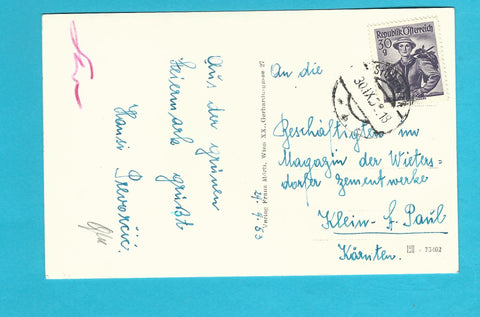 Aus der grünen
Steiermark grüßt
Hansi
24.9.53
Verlag Franz Mörtl, Wien XX., Gerhardusgasse 27
Republik Österreich
30 g
An die
Beschäftigten im
Magazin der Wieters-
dorfer Zementwerke
Klein- St. Paul
Kärnten.
- 73402